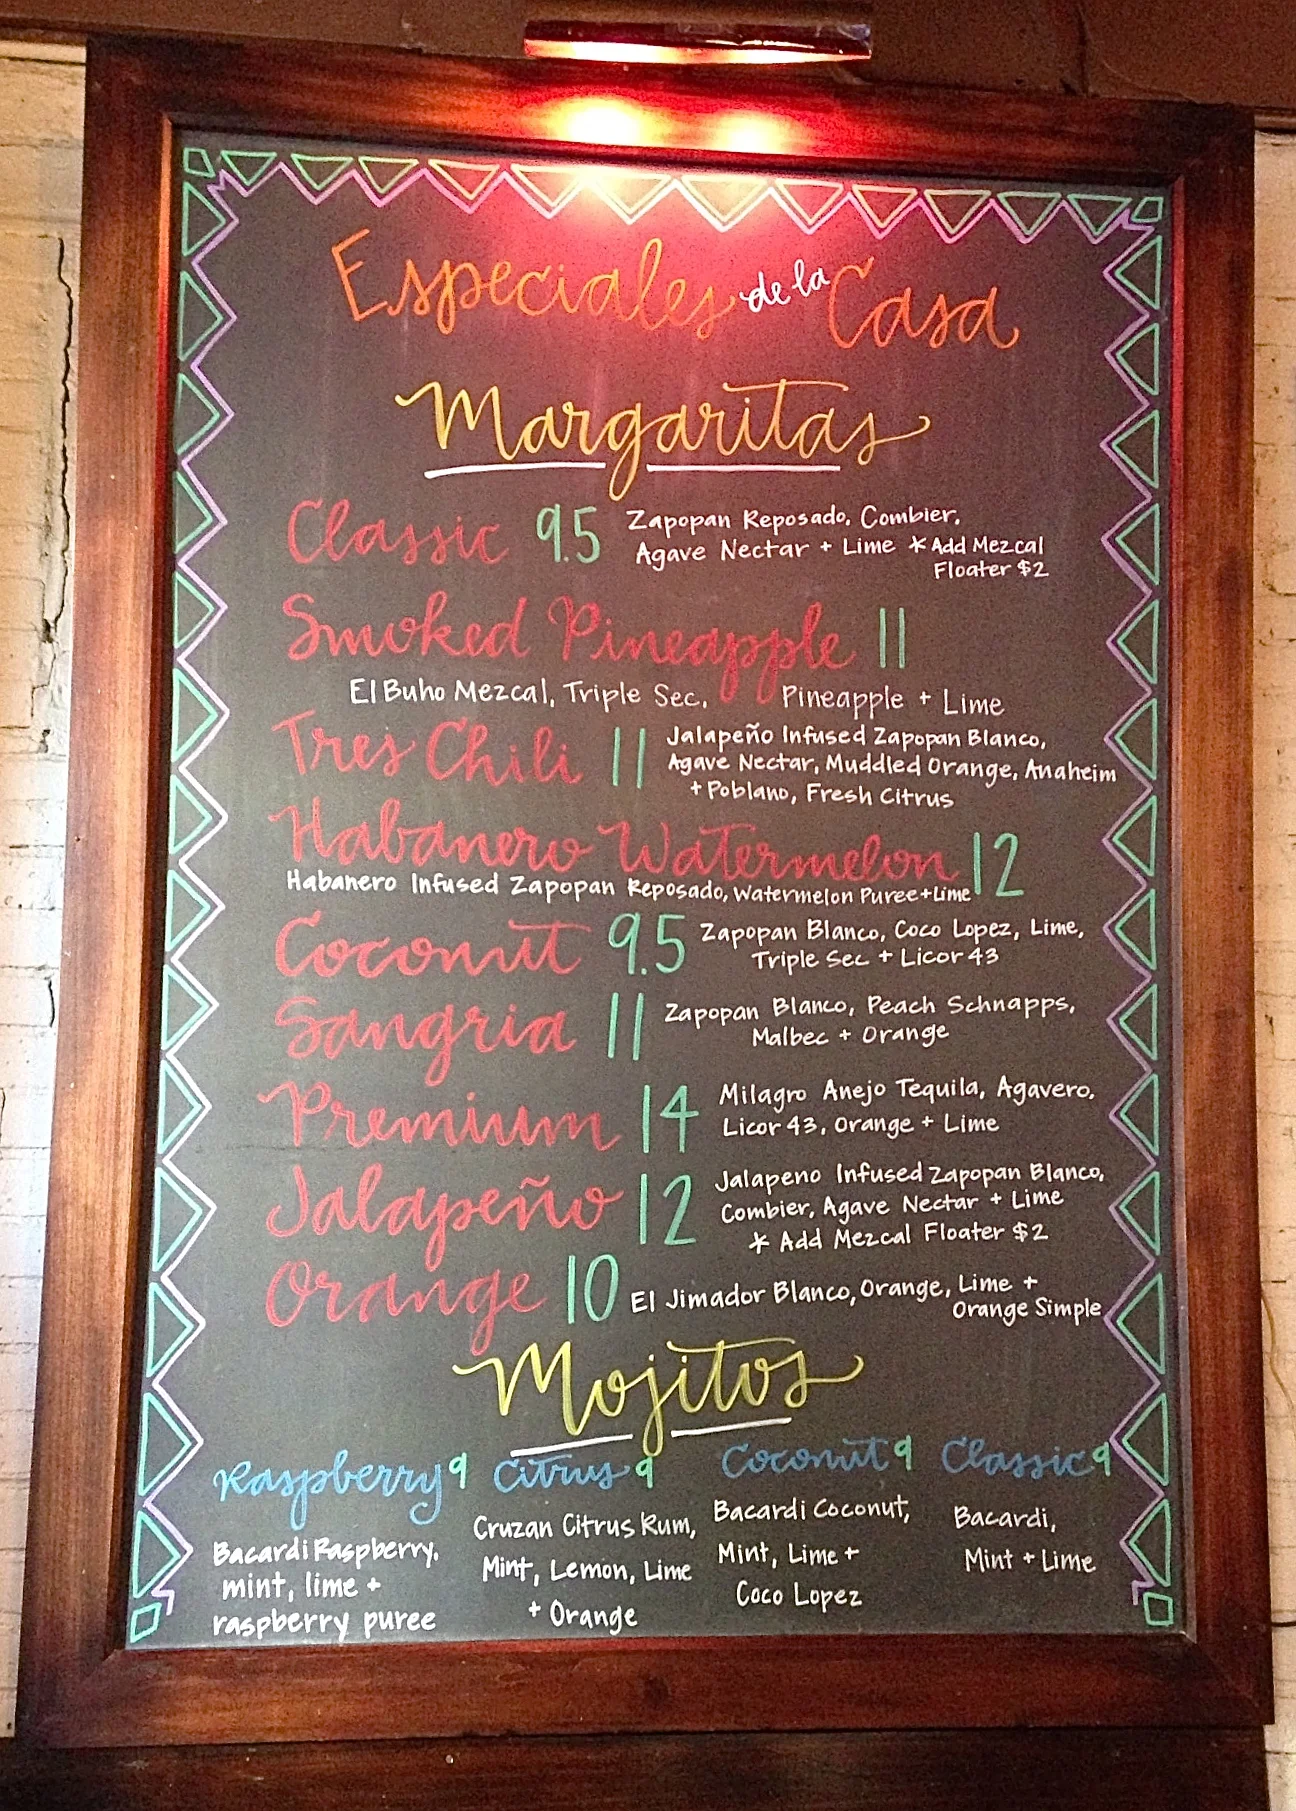 Especiales de la Casa
Margaritas
Classic 9.5 Zapopan Reposado, Combier,
Agave Nectar + Lime * Add Mezcal
Floater $2
Smoked Pineapple 11
El Buho Mezcal, Triple Sec, Pineapple + Lime
Tres Chili 11 Jalapeño Infused Zapopan Blanco,
Agave Nectar, Muddled Orange, Anaheim
+ Poblano, Fresh Citrus
Habanero Watermelon 12
Habanero Infused Zapopan Reposado, Watermelon Puree + Lime
Coconut 9.5 Zapopan Blanco, Coco Lopez, Lime,
Triple Sec + Licor 43
Sangria 11 Zapopan Blanco, Peach Schnapps,
Malbec + Orange
Premium 14 Milagro Anejo Tequila, Agavero,
Licor 43, Orange + Lime
Jalapeño 12 Jalapeno Infused Zapopan Blanco,
Combier, Agave Nectar + Lime
* Add Mezcal Floater $2
Orange 10 El Jimador Blanco, Orange, Lime +
Orange Simple
Mojitos
Raspberry 9
Bacardi Raspberry,
mint, lime +
raspberry puree
Citrus 9
Cruzan Citrus Rum,
Mint, Lemon, Lime
+ Orange
Coconut 9
Bacardi Coconut,
Mint, Lime +
Coco Lopez
Classic 9
Bacardi,
Mint + Lime